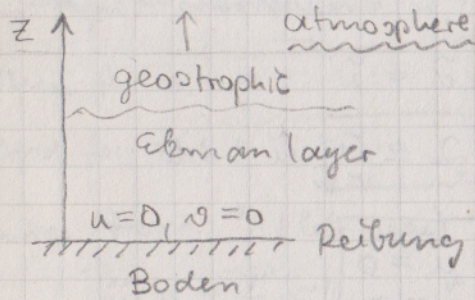 z
atmosphere
geostrophic
Ekman layer
u=0, v=0
Reibung
Boden